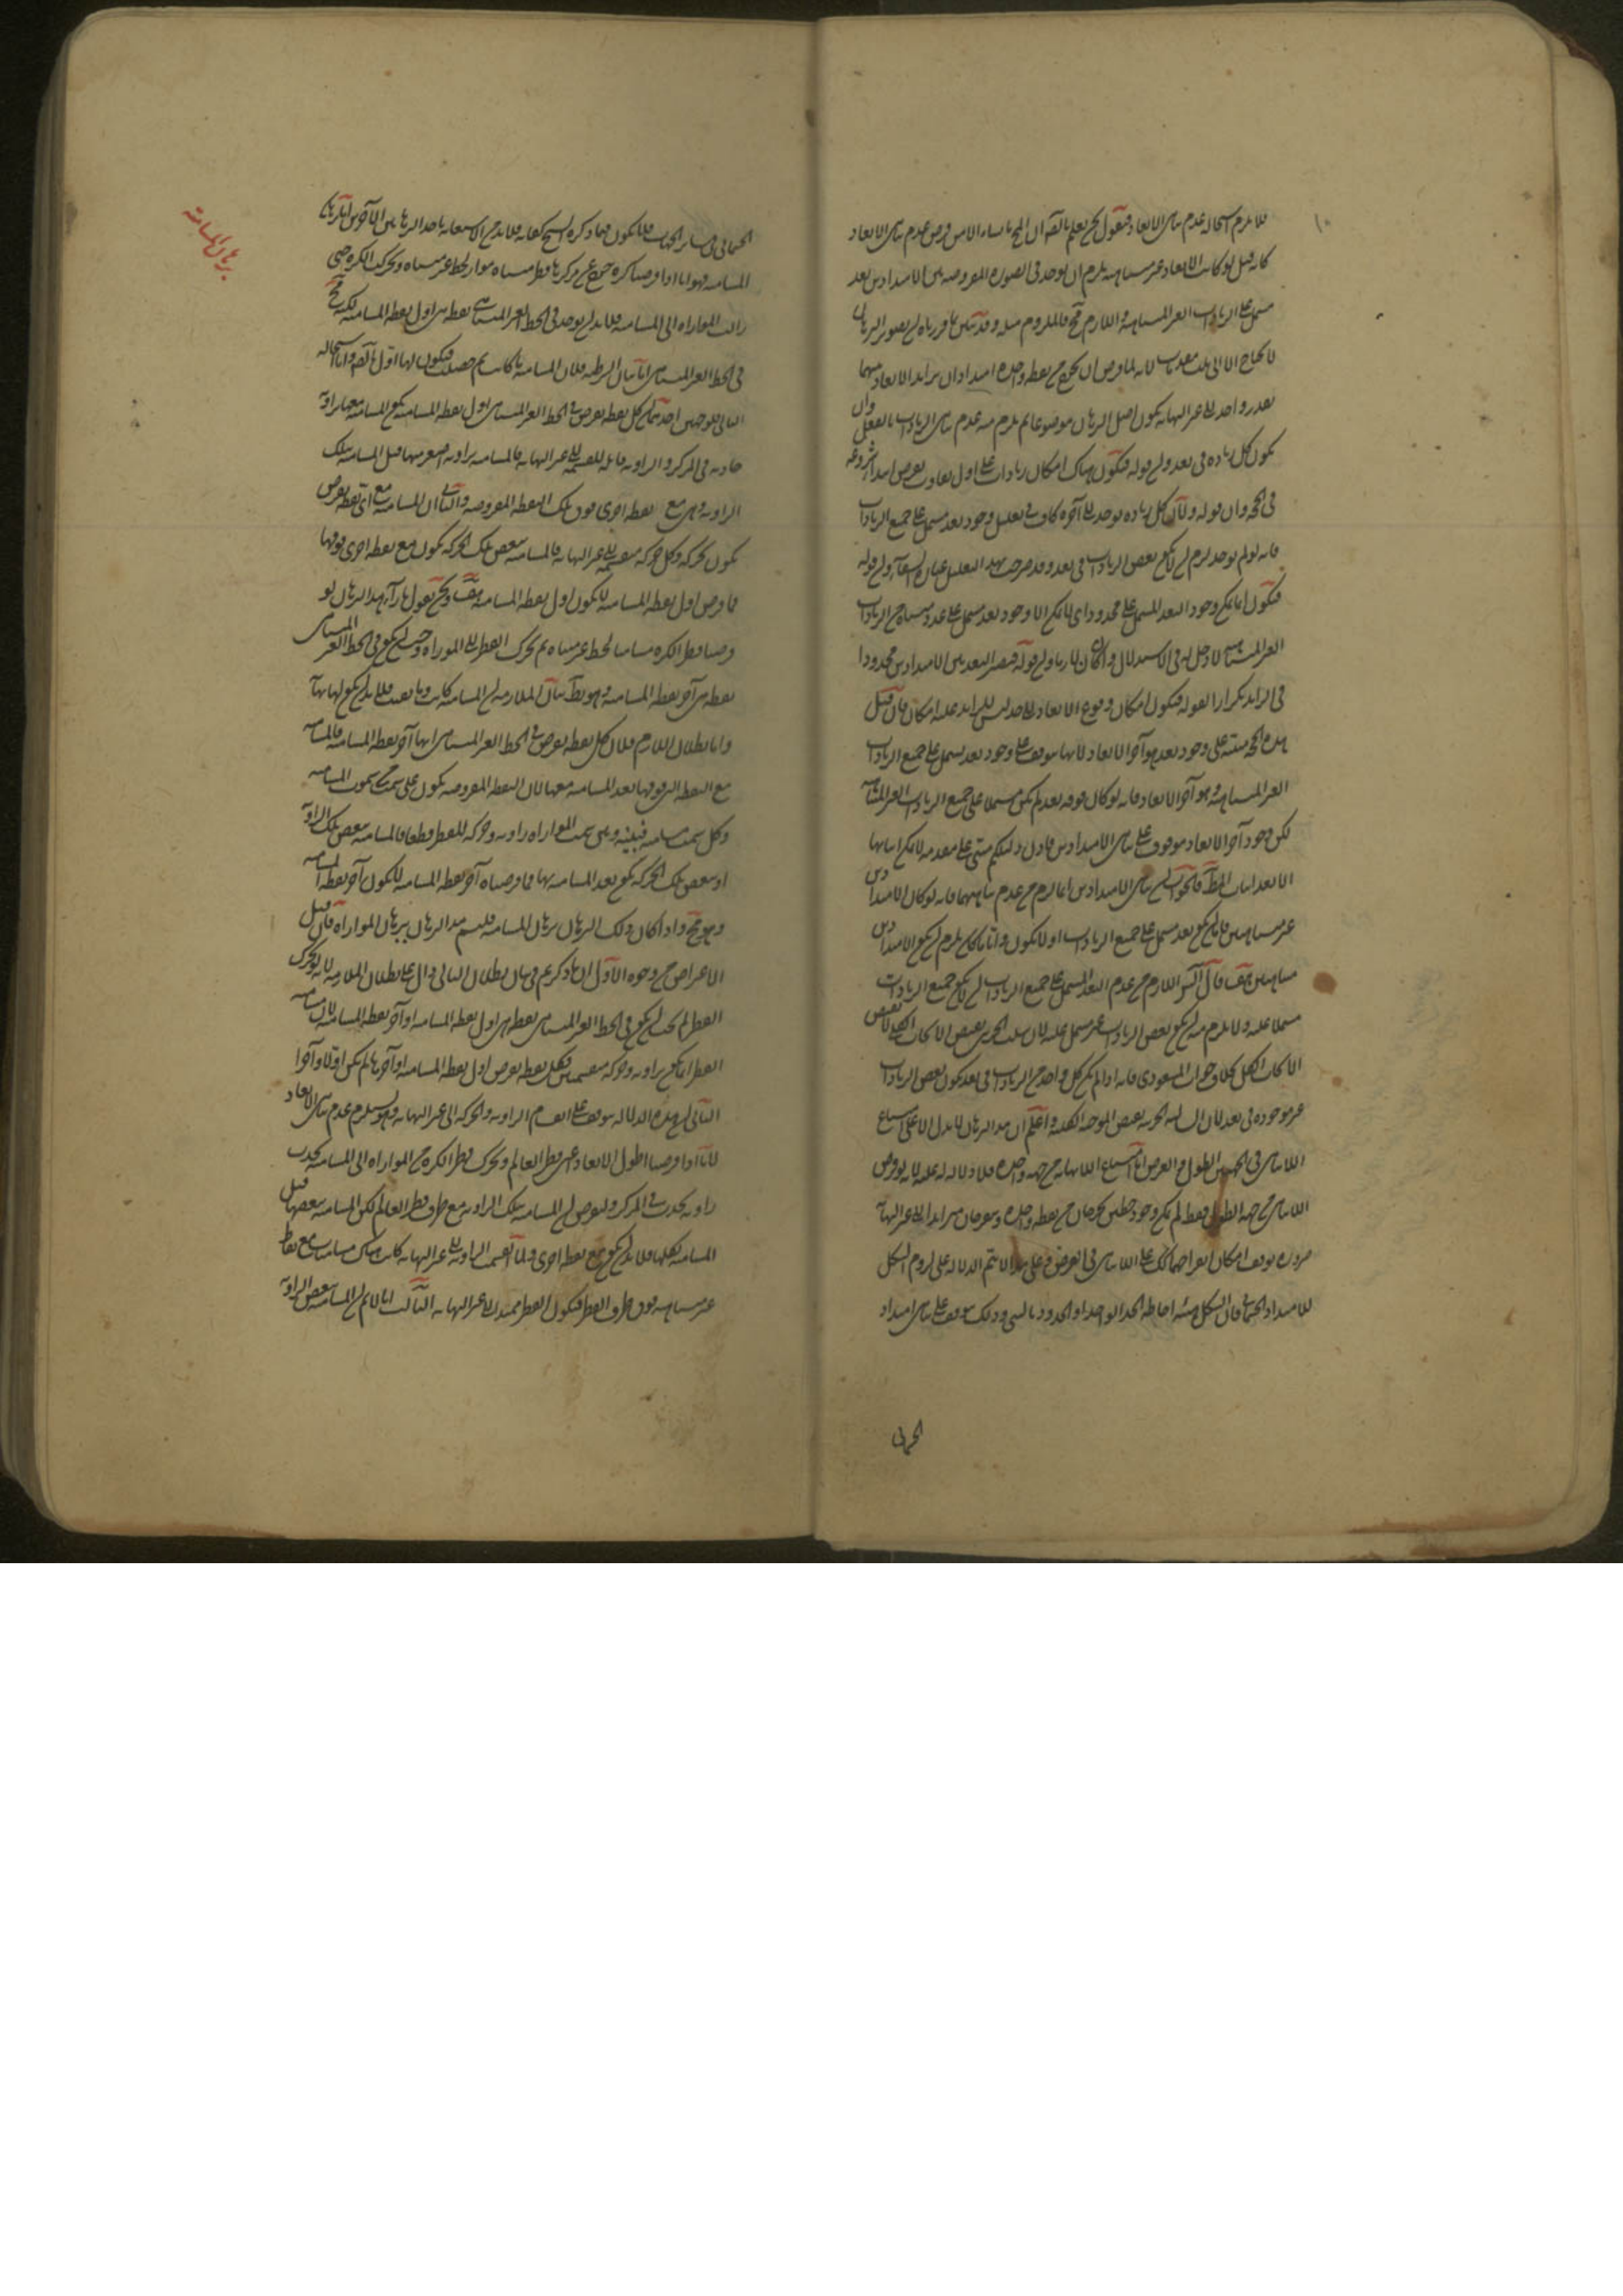 ١٠
فلا يلزم استحالة عدم تناهي الابعاد فنقول نحن نعلم بالضرورة ان المح انما نشاء الا من فرض عدم تناهي الابعاد
كانه قيل لو كانت الابعاد غير متناهية يلزم ان يوجد في الصورة المفروضة بين الامتدادين بعد
مشتمل على الزيادات الغير المتناهية واللازم مح فالملزوم مثله وقد تبين بما قررناه ان تصوير البرهان
لا يحتاج الا الى مقدمات لانه لما فرض ان يخرج من نقطة واحدة امتدادان يتزايد الابعاد بينهما
بقدر واحد الى غير النهاية يكون اصل البرهان موضوعا ثم يلزم منه عدم تناهي الزيادات بالفعل وان
يكون كل زيادة في بعد وان قوله فيكون هناك امكان زيادات على اول تفاوت يفرض
في الحجة وان قوله ولان كل زيادة توجد الى آخره كاف في تعليل وجود بعد مشتمل على جميع الزيادات
فانه لو لم يوجد لزم ان لا يكون بعض الزيادات في بعد وقد صرحت بهذا التعليل عبارة الشفاء وان قوله
فيكون انما يمكن وجود البعد المشتمل على محدود اي لا يمكن الا وجود بعد مشتمل على عدد متناه من الزيادات
الغير المتناهية لا دخل له في الاستدلال وان قوله فيصير البعد بين الامتدادين محدودا
في التزايد تكرارا لقوله فيكون امكان وقوع الابعاد الى حد ليس للزائد عليه امكان فان قيل
هذه الحجة مبنية على وجود بعد هو آخر الابعاد لانها موقوفة على وجود بعد يشتمل على جميع الزيادات
الغير المتناهية وهو آخر الابعاد فانه لو كان فوقه بعد لم يكن مشتملا على جميع الزيادات الغير المتناهية
لكن وجود آخر الابعاد موقوف على تناهي الامتدادين فاذن دليلكم مبني على مقدمة لا يمكن اثباتها
الا بعد اثبات المط فالجواب ان تناهي الامتدادين انما لزم من عدم تناهيهما فانه لو كان الامتدادين
غير متناهيين فاما ان يكون بعد مشتمل على جميع الزيادات او لا يكون وايا ما كان يلزم ان يكون الامتدادين
متناهيين هف فان اللازم من عدم البعد المشتمل على جميع الزيادات ان لا يكون جميع الزيادات
مشتملا عليه ولا يلزم منه ان يكون بعض الزيادات غير مشتمل عليه لان سلب الجزئي نقيض الايجاب الكلي لا نقيض
الايجاب الكل وجواب المسعودي فانه اذا لم يكن كل واحد من الزيادات في بعد يكون بعض الزيادات
غير موجودة في بعد لان السالبة الجزئية نقيض الموجبة الكلية واعلم ان هذا البرهان لا يدل الا على امتناع
اللاتناهي في الجهتين الطول والعرض اما امتناع اللاتناهي من جهة واحدة فلا دلالة له عليه لانه لو فرض
اللاتناهي من جهة الطول فقط لم يمكن وجود خطين يخرجان من نقطة واحدة وينفرجان متزايدا الى غير النهاية
ضرورة توقف امكان انفراجهما كذلك على اللاتناهي في العرض وعلى هذا لا يتم الدلالة على لزوم الشكل
للامتداد الجسماني فان الشكل هيئة احاطة الحد الواحد او الحدود بالشيء وذلك موقوف على تناهي امتداد
الجسماني
الجسماني في سائر الجهات فلا يكون فيما ذكره الشيخ كفاية فلا بد من الاستعانة باحد البرهانين الآخرين اما برهان
المسامتة فهو انا اذا فرضنا كرة خرج عن مركزها قطر متناه مواز لخط غير متناه وتحركت الكرة حتى
زالت الموازاة الى المسامتة فلا بد ان يوجد في الخط الغير المتناهي نقطة هي اول نقطة المسامتة لكنه مح
في الخط الغير المتناهي اما بيان الشرطية فلان المسامتة ما كانت ثم حصلت فيكون لها اول بالضرورة واما استحالة
التالي فلوجهين احدهما ان كل نقطة تفرض في الخط الغير المتناهي اول نقطة المسامتة يكون المسامتة معها بزاوية
حادثة في المركز والزاوية قابلة للقسمة الى غير النهاية فالمسامتة بزاوية اصغر منها قبل المسامتة بتلك
الزاوية وهي مع نقطة اخرى فوق تلك النقطة المفروضة والثاني ان المسامتة مع اي نقطة تفرض
يكون بحركة وكل حركة منقسمة الى غير النهاية فالمسامتة ببعض تلك الحركة يكون مع نقطة اخرى فوقها
فما فرض اول نقطة المسامتة لا يكون اول نقطة المسامتة هف ونحن نقول بازاء هذا البرهان لو
فرضنا قطر الكرة مسامتا لخط غير متناه ثم تحرك القطر الى الموازاة وجب ان يكون في الخط الغير المتناهي
نقطة هي آخر نقطة المسامتة وهو بط بيان الملازمة ان المسامتة كانت وما بقيت فلا بد ان يكون لها نهاية
واما بطلان اللازم فلان كل نقطة تفرض في الخط الغير المتناهي انها آخر نقطة المسامتة فالمسامتة
مع النقطة التي فوقها بعد المسامتة معها لان النقطة المفروضة يكون على سمت من سموت المسامتة
وكل سمت مسامتة فبينه وبين سمت الموازاة زاوية وحركة للقطر قطعا فالمسامتة ببعض تلك الزاوية
او ببعض تلك الحركة يكون بعد المسامتة بها فما فرضناه آخر نقطة المسامتة لا يكون آخر نقطة المسامتة
وهو مح واذا كان ذلك البرهان برهان المسامتة فليسم هذا البرهان ببرهان الموازاة فان قيل
الاعتراض من وجوه الاول ان ما ذكرتم في بيان بطلان التالي دال على بطلان الملازمة لانه لو تحرك
القطر لم يجب ان يكون في الخط الغير المتناهي نقطة هي اول نقطة المسامتة او آخر نقطة المسامتة لان مسامتة
القطر انما يكون بزاوية وحركة منقسمين فكل نقطة تفرض اول نقطة المسامتة او آخرها لم يكن اولا وآخرا
الثاني ان هذه الدلالة موقوفة على انقسام الزاوية والحركة الى غير النهاية وهو يستلزم عدم تناهي الابعاد
لانا اذا فرضنا اطول الابعاد اعني قطر العالم وتحرك قطر الكرة من الموازاة الى المسامتة يحدث
زاوية تحدث في المركز ولنفرض ان المسامتة بتلك الزاوية مع طرف قطر العالم لكن المسامتة ببعضها قبل
المسامتة بكلها فلا بد ان يكون مع نقطة اخرى ولما انقسمت الزاوية الى غير النهاية كانت هناك مسامتات مع نقاط
غير متناهية فوق طرف القطر فيكون القطر ممتدا الى غير النهاية الثالث انا لا نم ان المسامتة ببعض الزاوية
برهان المسامتة